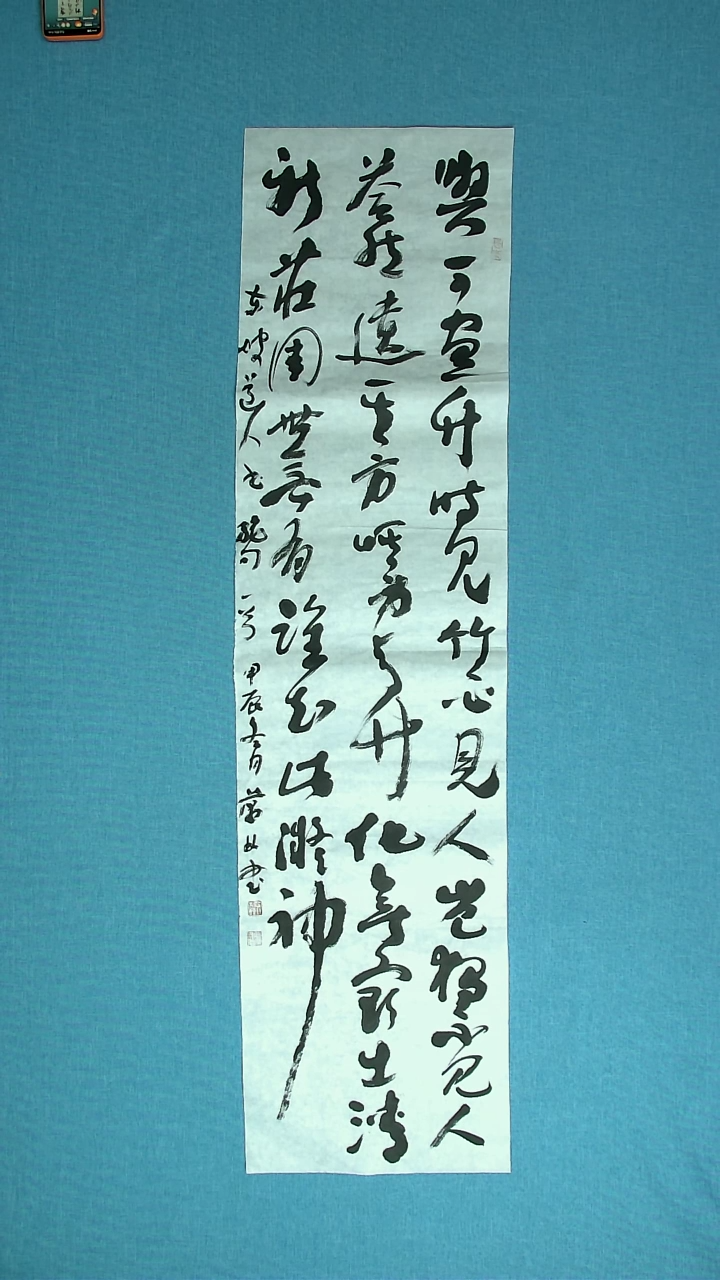 與可畫竹時見竹不見人豈獨不見人
荅然遺其身其身與竹化無窮出清
新莊周世無有誰知此凝神
東坡道人 甲辰冬月 書